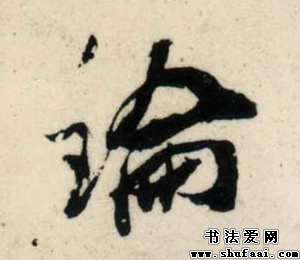 論
书法爱网
www.shufaai.com